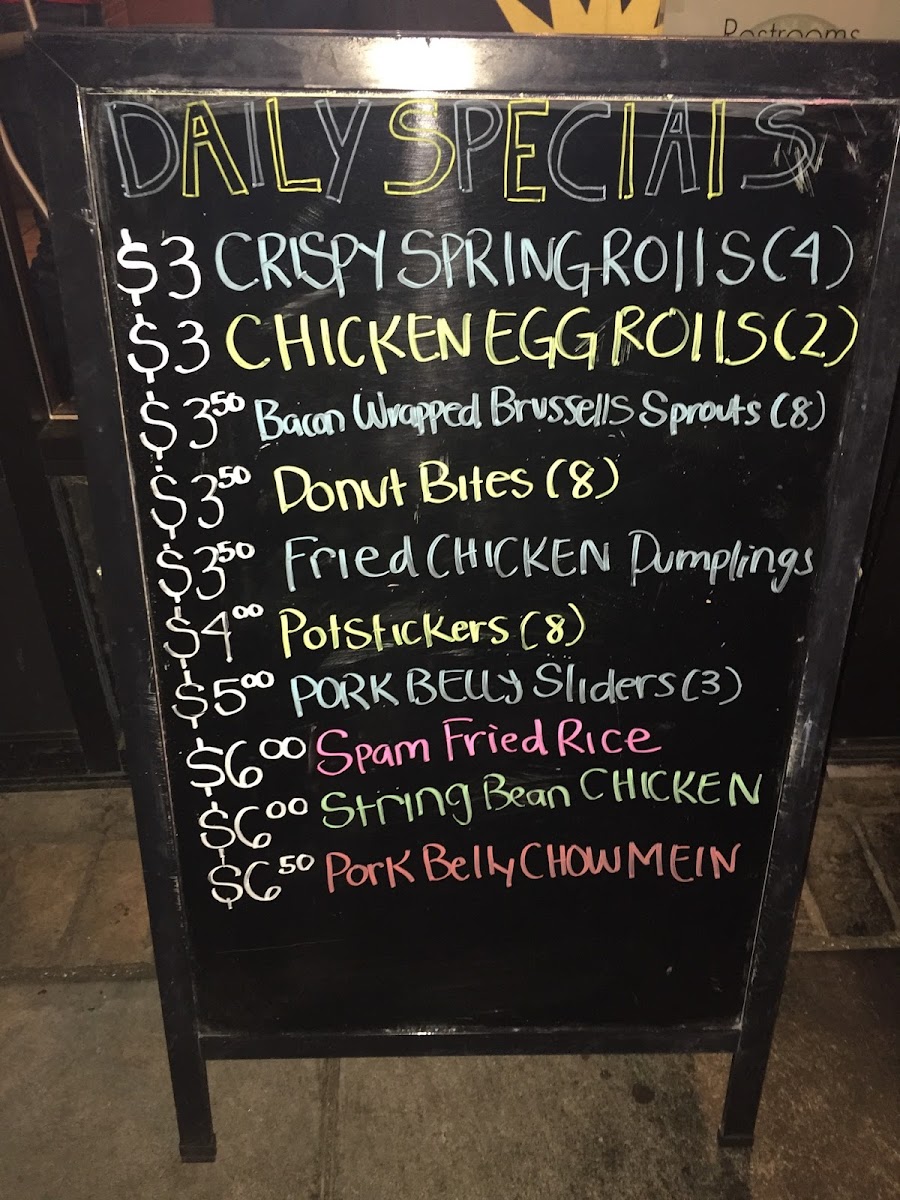 Restrooms
DAILY SPECIALS
$3 CRISPY SPRING ROllS (4)
$3 CHICKEN EGG ROllS (2)
$3.50 Bacon Wrapped Brussells Sprouts (8)
$3.50 Donut Bites (8)
$3.50 Fried CHICKEN Dumplings
$4.00 Potstickers (8)
$5.00 PORK BELLY Sliders (3)
$6.00 Spam Fried Rice
$6.00 String Bean CHICKEN
$6.50 Pork Belly CHOW MEIN